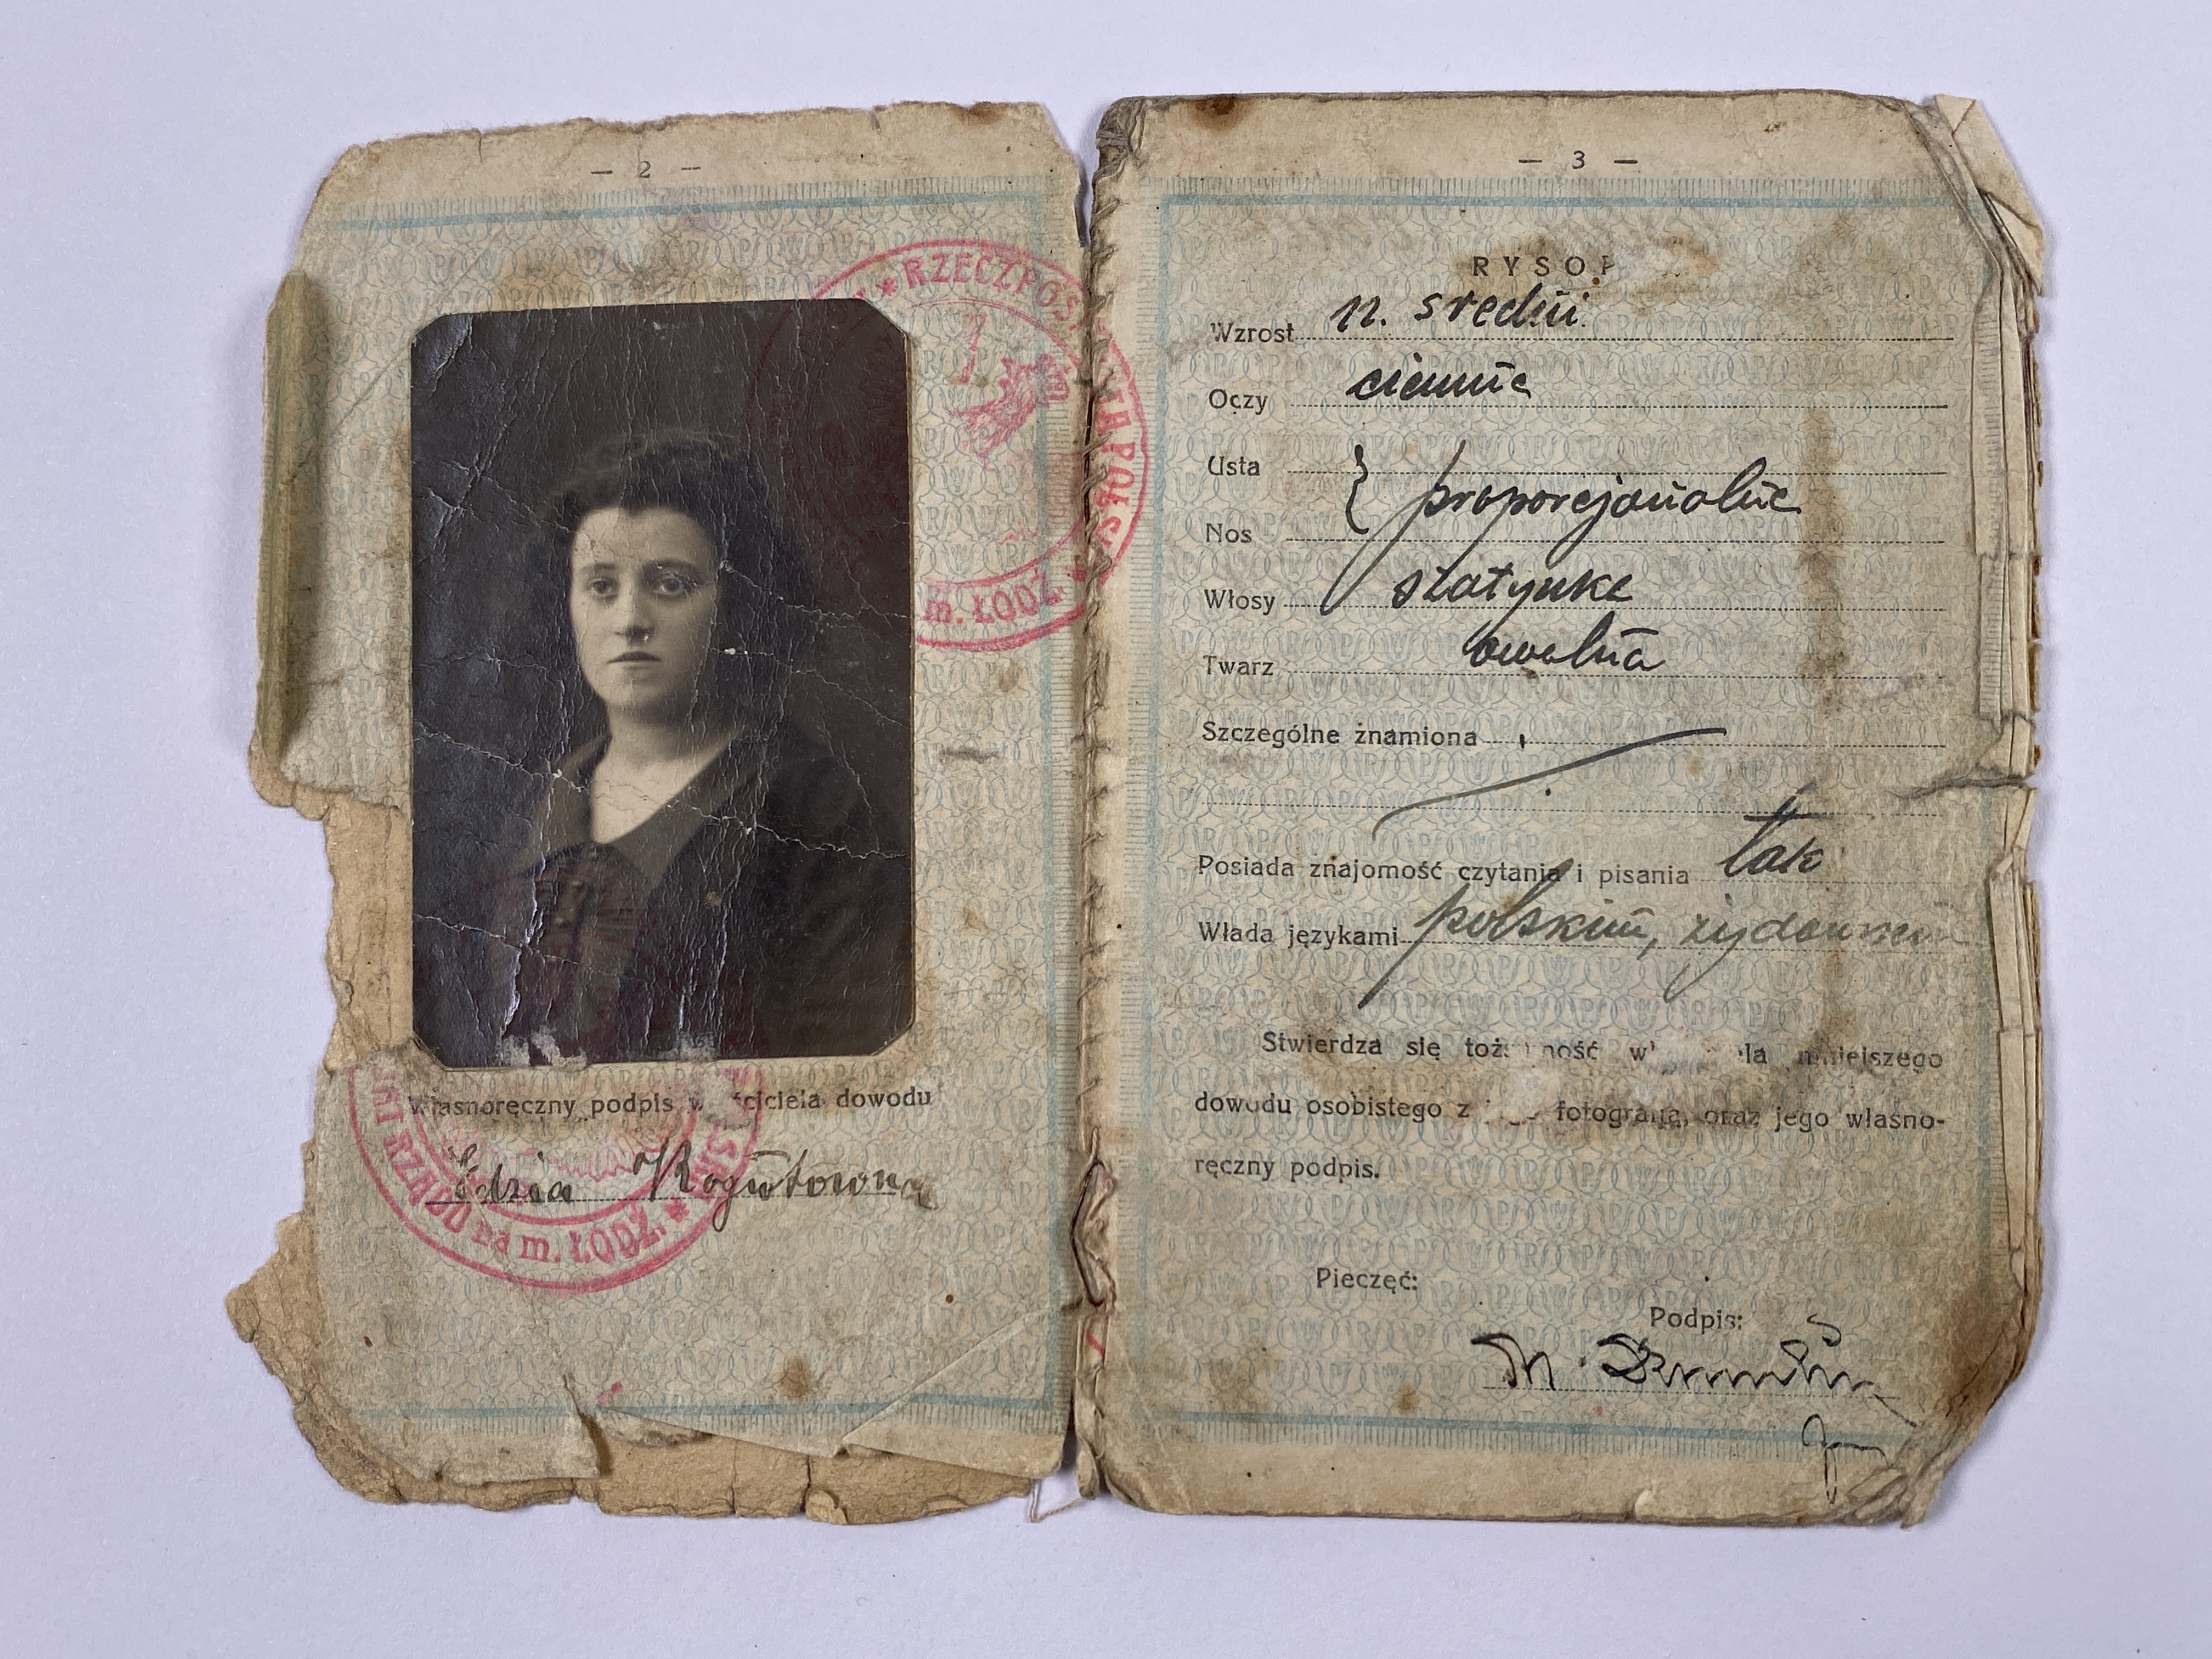 — 2 —
* RZECZPOS
m. ŁÓDŹ. *
Własnoręczny podpis ciciela dowodu
Edzia Rogutowna
RZĄDU na m. ŁÓDŹ. *
— 3 —
RYSOP
Wzrost n. średni
Oczy ciemne
Usta
} proporcjonalne
Nos
Włosy szatynke
Twarz owalna
Szczególne znamiona
Posiada znajomość czytania i pisania tak
Włada językami polskim, żydowskim
Stwierdza się niniejszego
dowodu osobistego z fotografją, oraz jego własno-
ręczny podpis.
Pieczęć:
Podpis:
M.